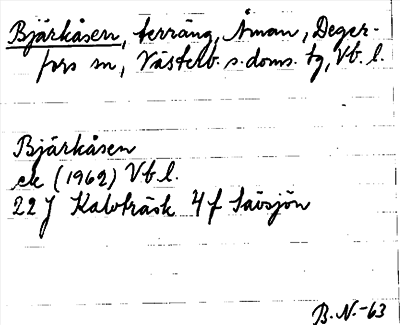 Bjärkåsen, terräng, Åman, Deger-
fors sn, Västerb. s. doms. tg, Vb. l.
Bjärkåsen
ek (1962) Vb l.
22 J Kalvträsk 4 f Sävsjön
B.N.-63